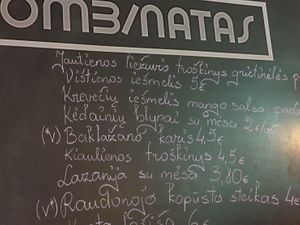 OMBINATAS
Jautienos liežuvis troškinys grietinėlės p
Vištienos iešmelis 5€
Krevečių iešmelis mango salsa pad
Kėdainių blynai su mėsa 2€/vnt
(v) Baklažano karis 4,5€
Kiaulienos troškinys 4,5€
Lazanija su mėsa 3,80€
(v) Raudonojo kopūsto steikas 4€